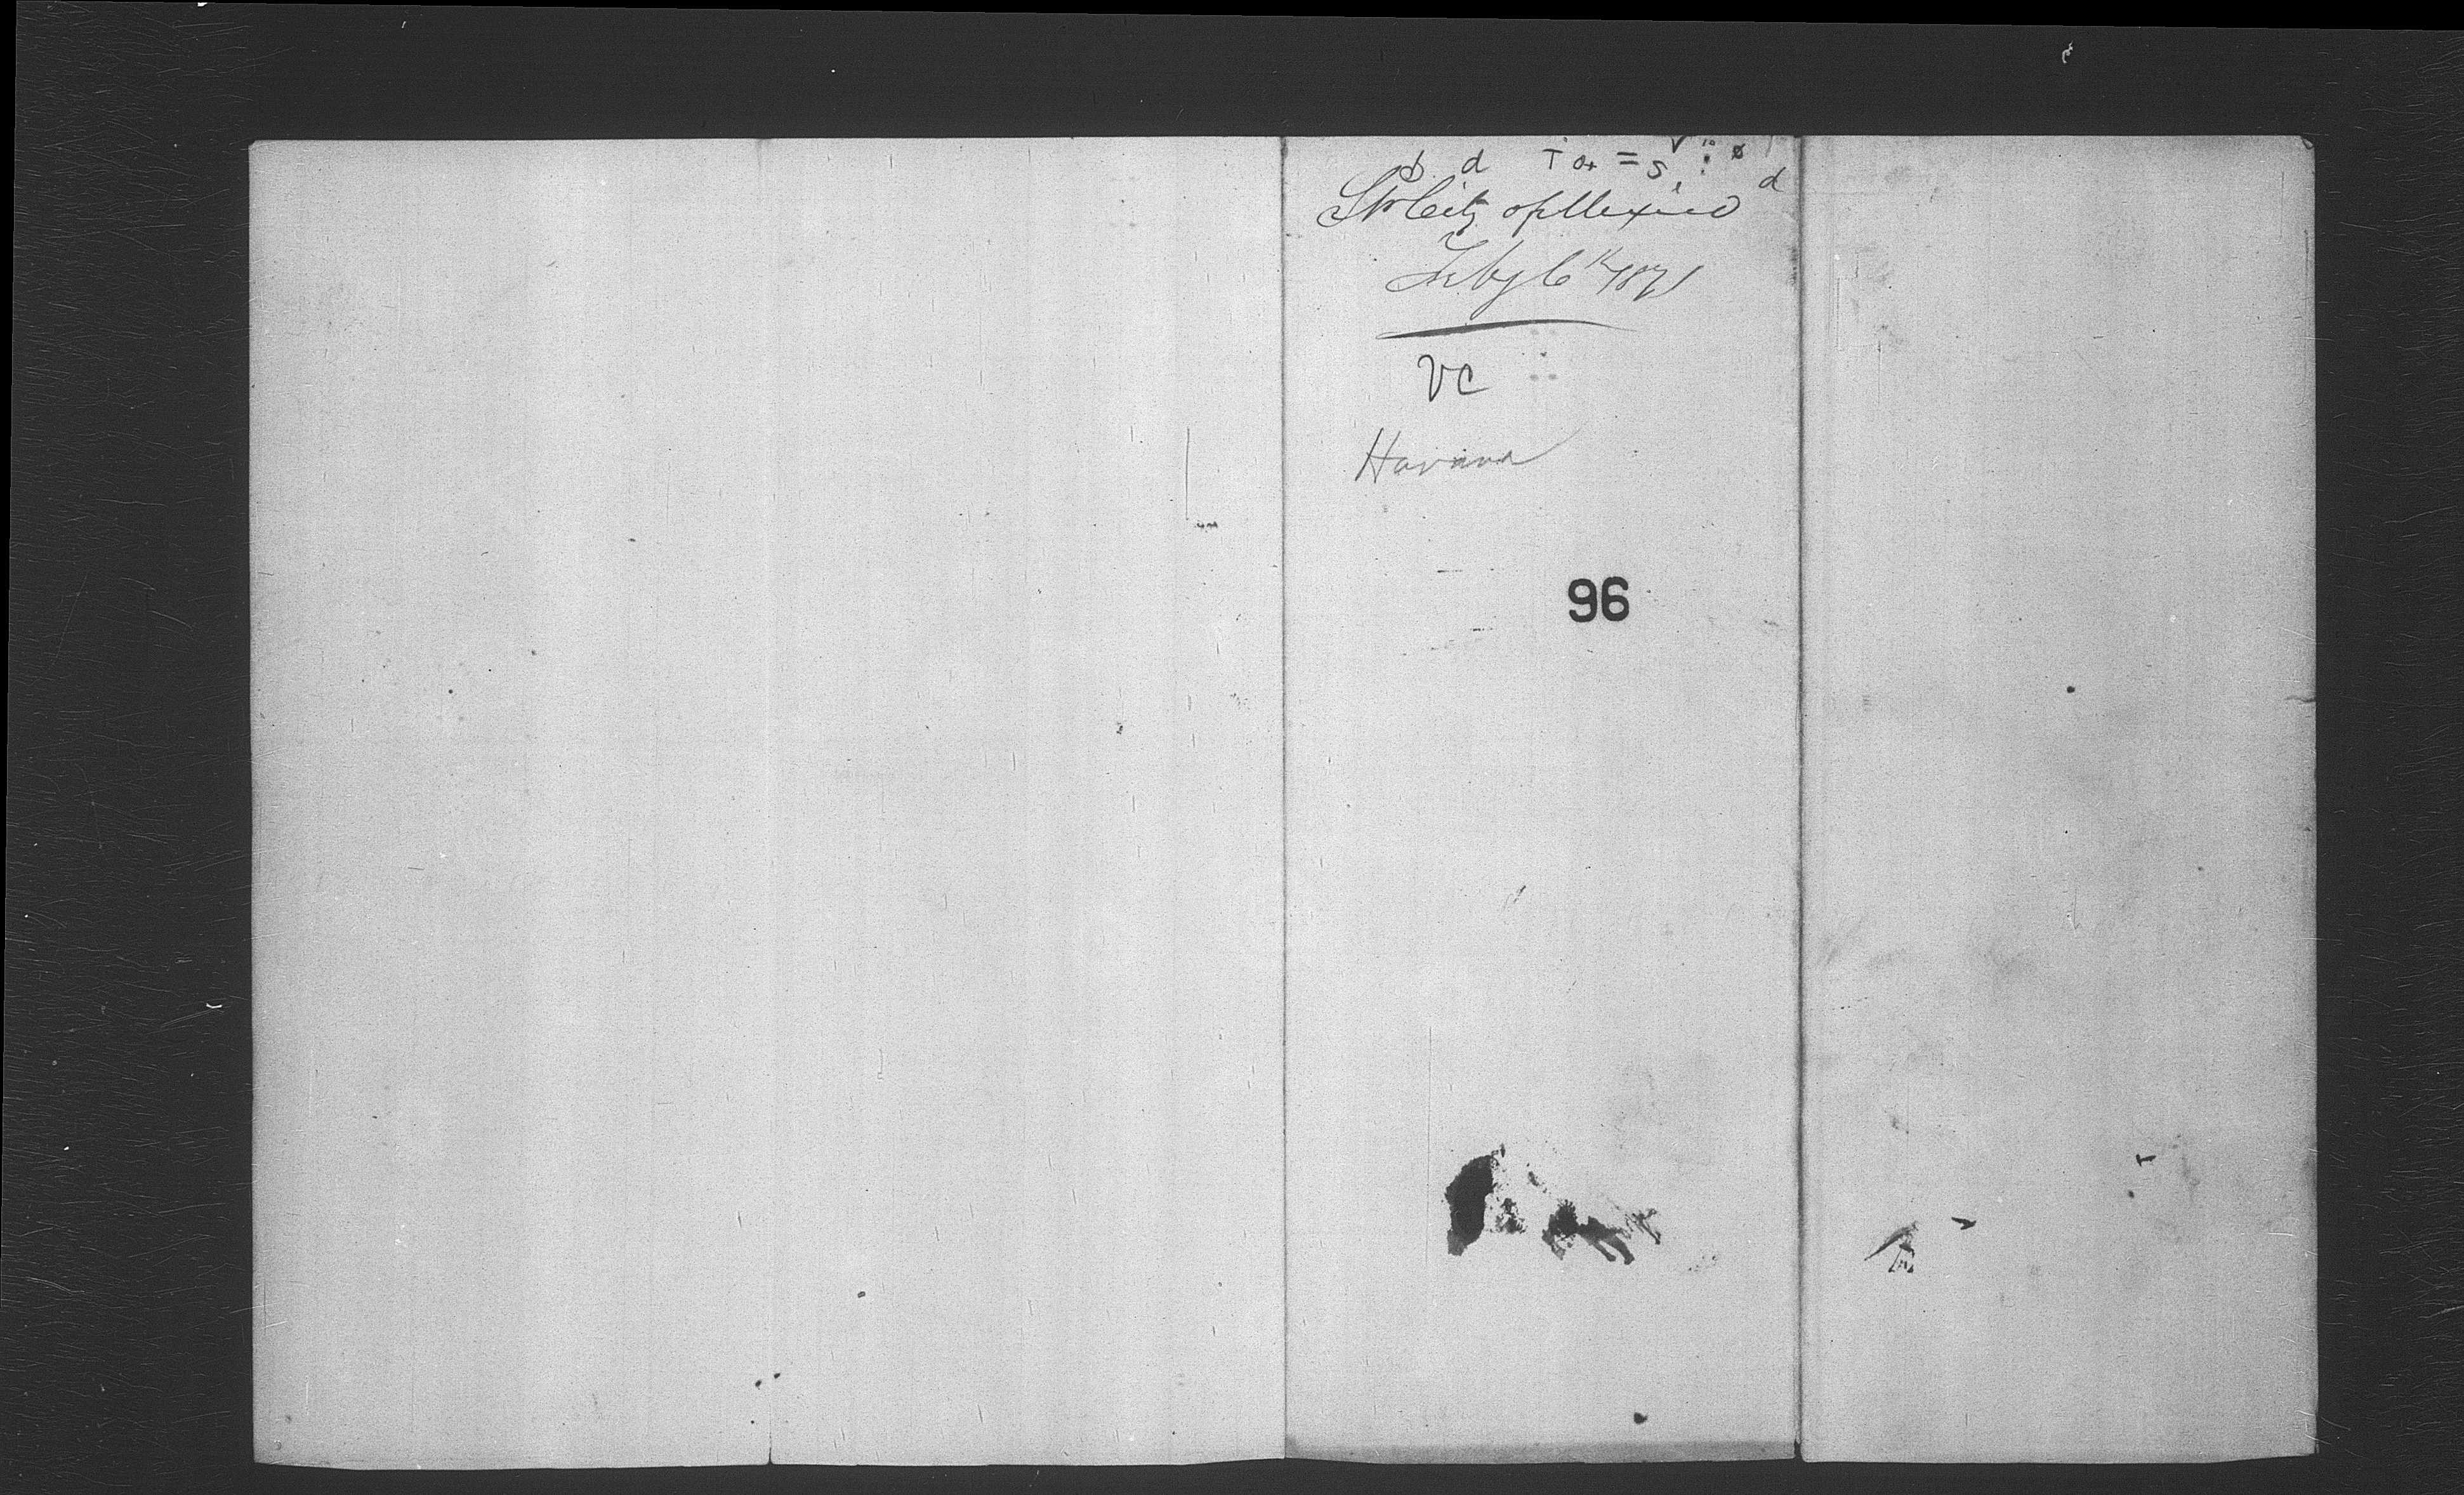 Str City of Mexico
Feby 6th 1871
VC
Havana
96